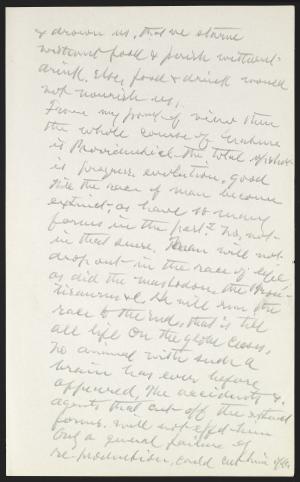 & drown us, that we starve
without food & perish without
drink. Else, food & drink would
not nourish us.
From my point of view then
the whole course of nature
is Providential. The total upshot
is progress, evolution, good
Will the race of man become
extinct, as have so many
forms in the past? No, not
in that sense. Man will not
drop out in the race of life
as did the mastodon, the
&c. He will run the
race to the end, that is till
all life on the globe ceases.
No animal with such a
brain has ever before
appeared. The accidents &
agents that cut off the
forms will not effect him
Only a general failure of
re-production, could cut him off.